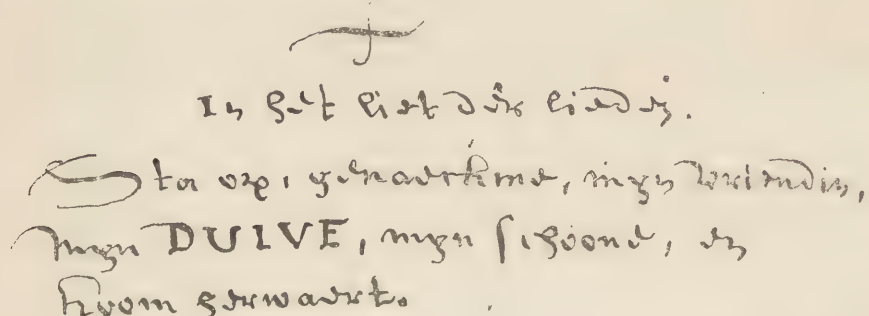 In het liet der lieden.
Sta op, genaeckme, mijn vriendin,
mijn DUIVE, mijn schoone, en
koom herwaert.